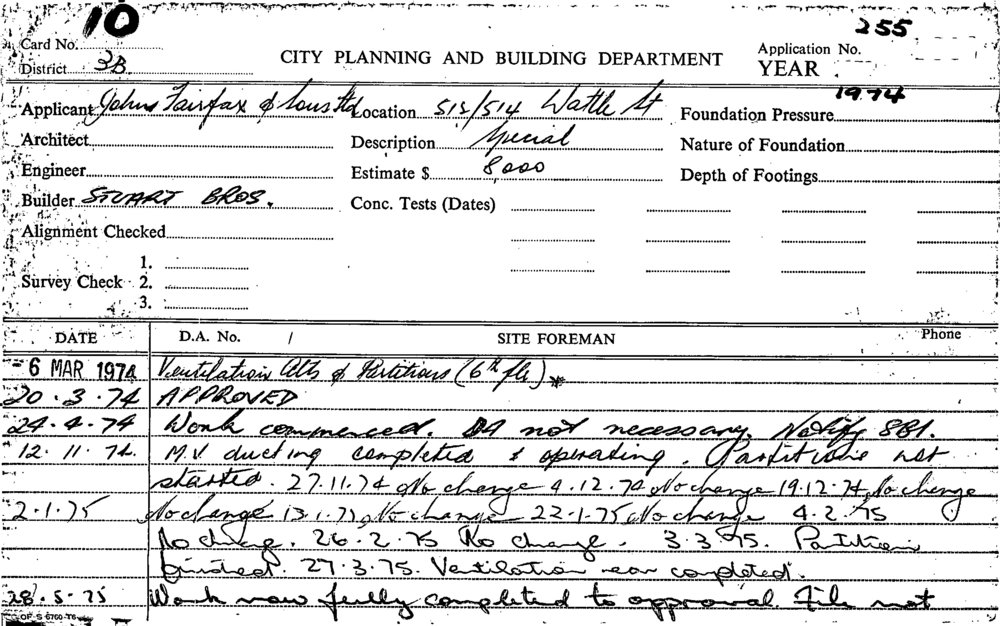 10
255
Card No.
CITY PLANNING AND BUILDING DEPARTMENT
Application No.
District 3B
YEAR
1974
Applicant John Fairfax & Sons Ltd Location 512/514 Wattle St Foundation Pressure
Architect Description Special Nature of Foundation
Engineer Estimate $ 8,000 Depth of Footings
Builder STUART BROS. Conc. Tests (Dates)
Alignment Checked
1.
Survey Check 2.
3.
DATE D.A. No. / SITE FOREMAN Phone
-6 MAR 1974 Ventilation Alts & Partitions (6th flr) *
20.3.74 APPROVED
24.4.74 Work commenced. DA not necessary. Notify 881.
12.11.74 M.V ducting completed & operating. Partitions not
started. 27.11.74 No change 4.12.74 No change 19.12.74 No change
2.1.75 No change 13.1.75 No change 22.1.75 No change 4.2.75
No change. 26.2.75 No change. 3.3.75. Partition
finished. 27.3.75. Ventilation near completed.
28.5.75 Work now fully completed to approval. File not